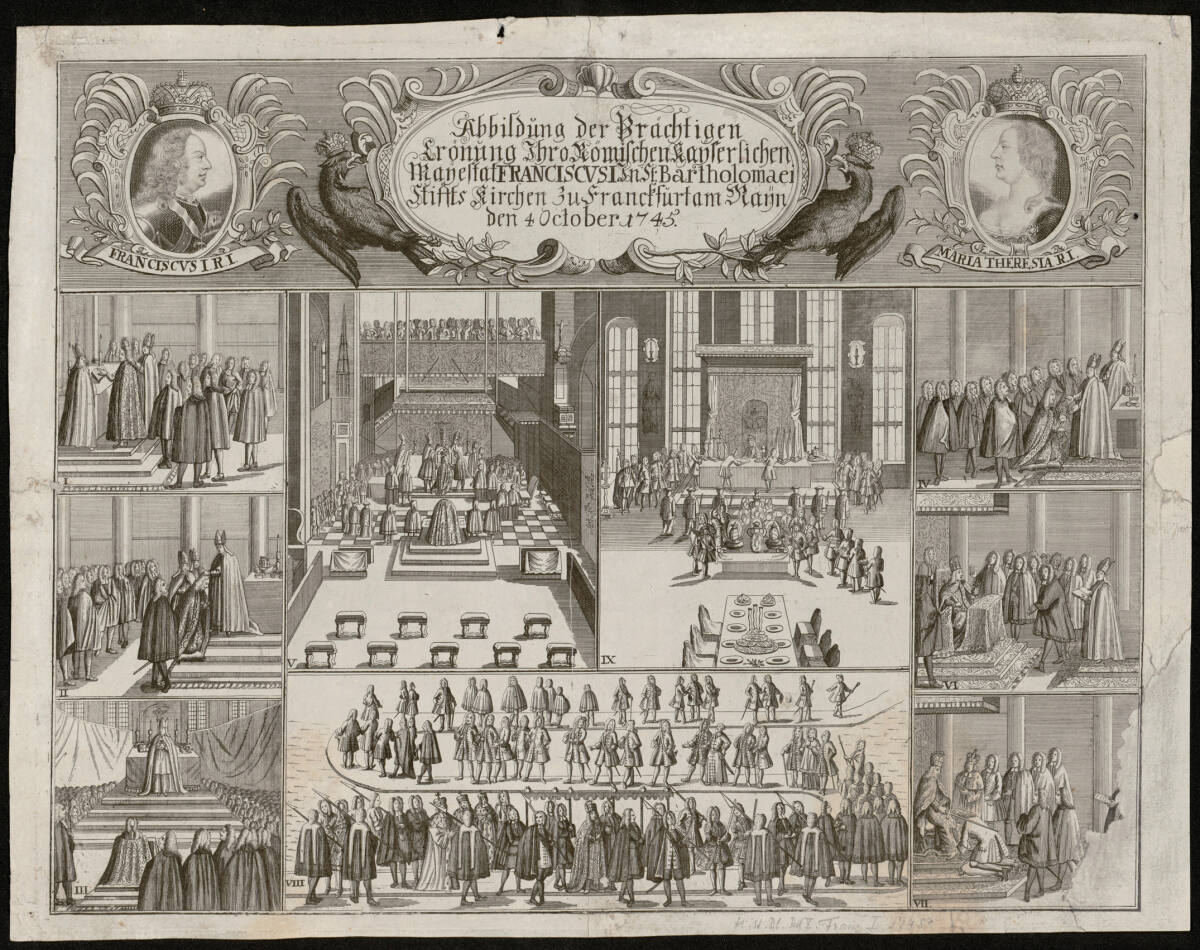 Abbildüng der Prächtigen
Crönung Ihro Römischen Kayserlichen
Mayestät FRANCISCVS I. In St. Bartholomaei
Stiffts Kirchen Zu Franckfürt am Mäyn
den 4 October. 1745.
FRANCISCVS I R I
MARIA THERESIA R I.
I
II
III
IV
V
VI
VII
VIII
IX
Franz I. 1745